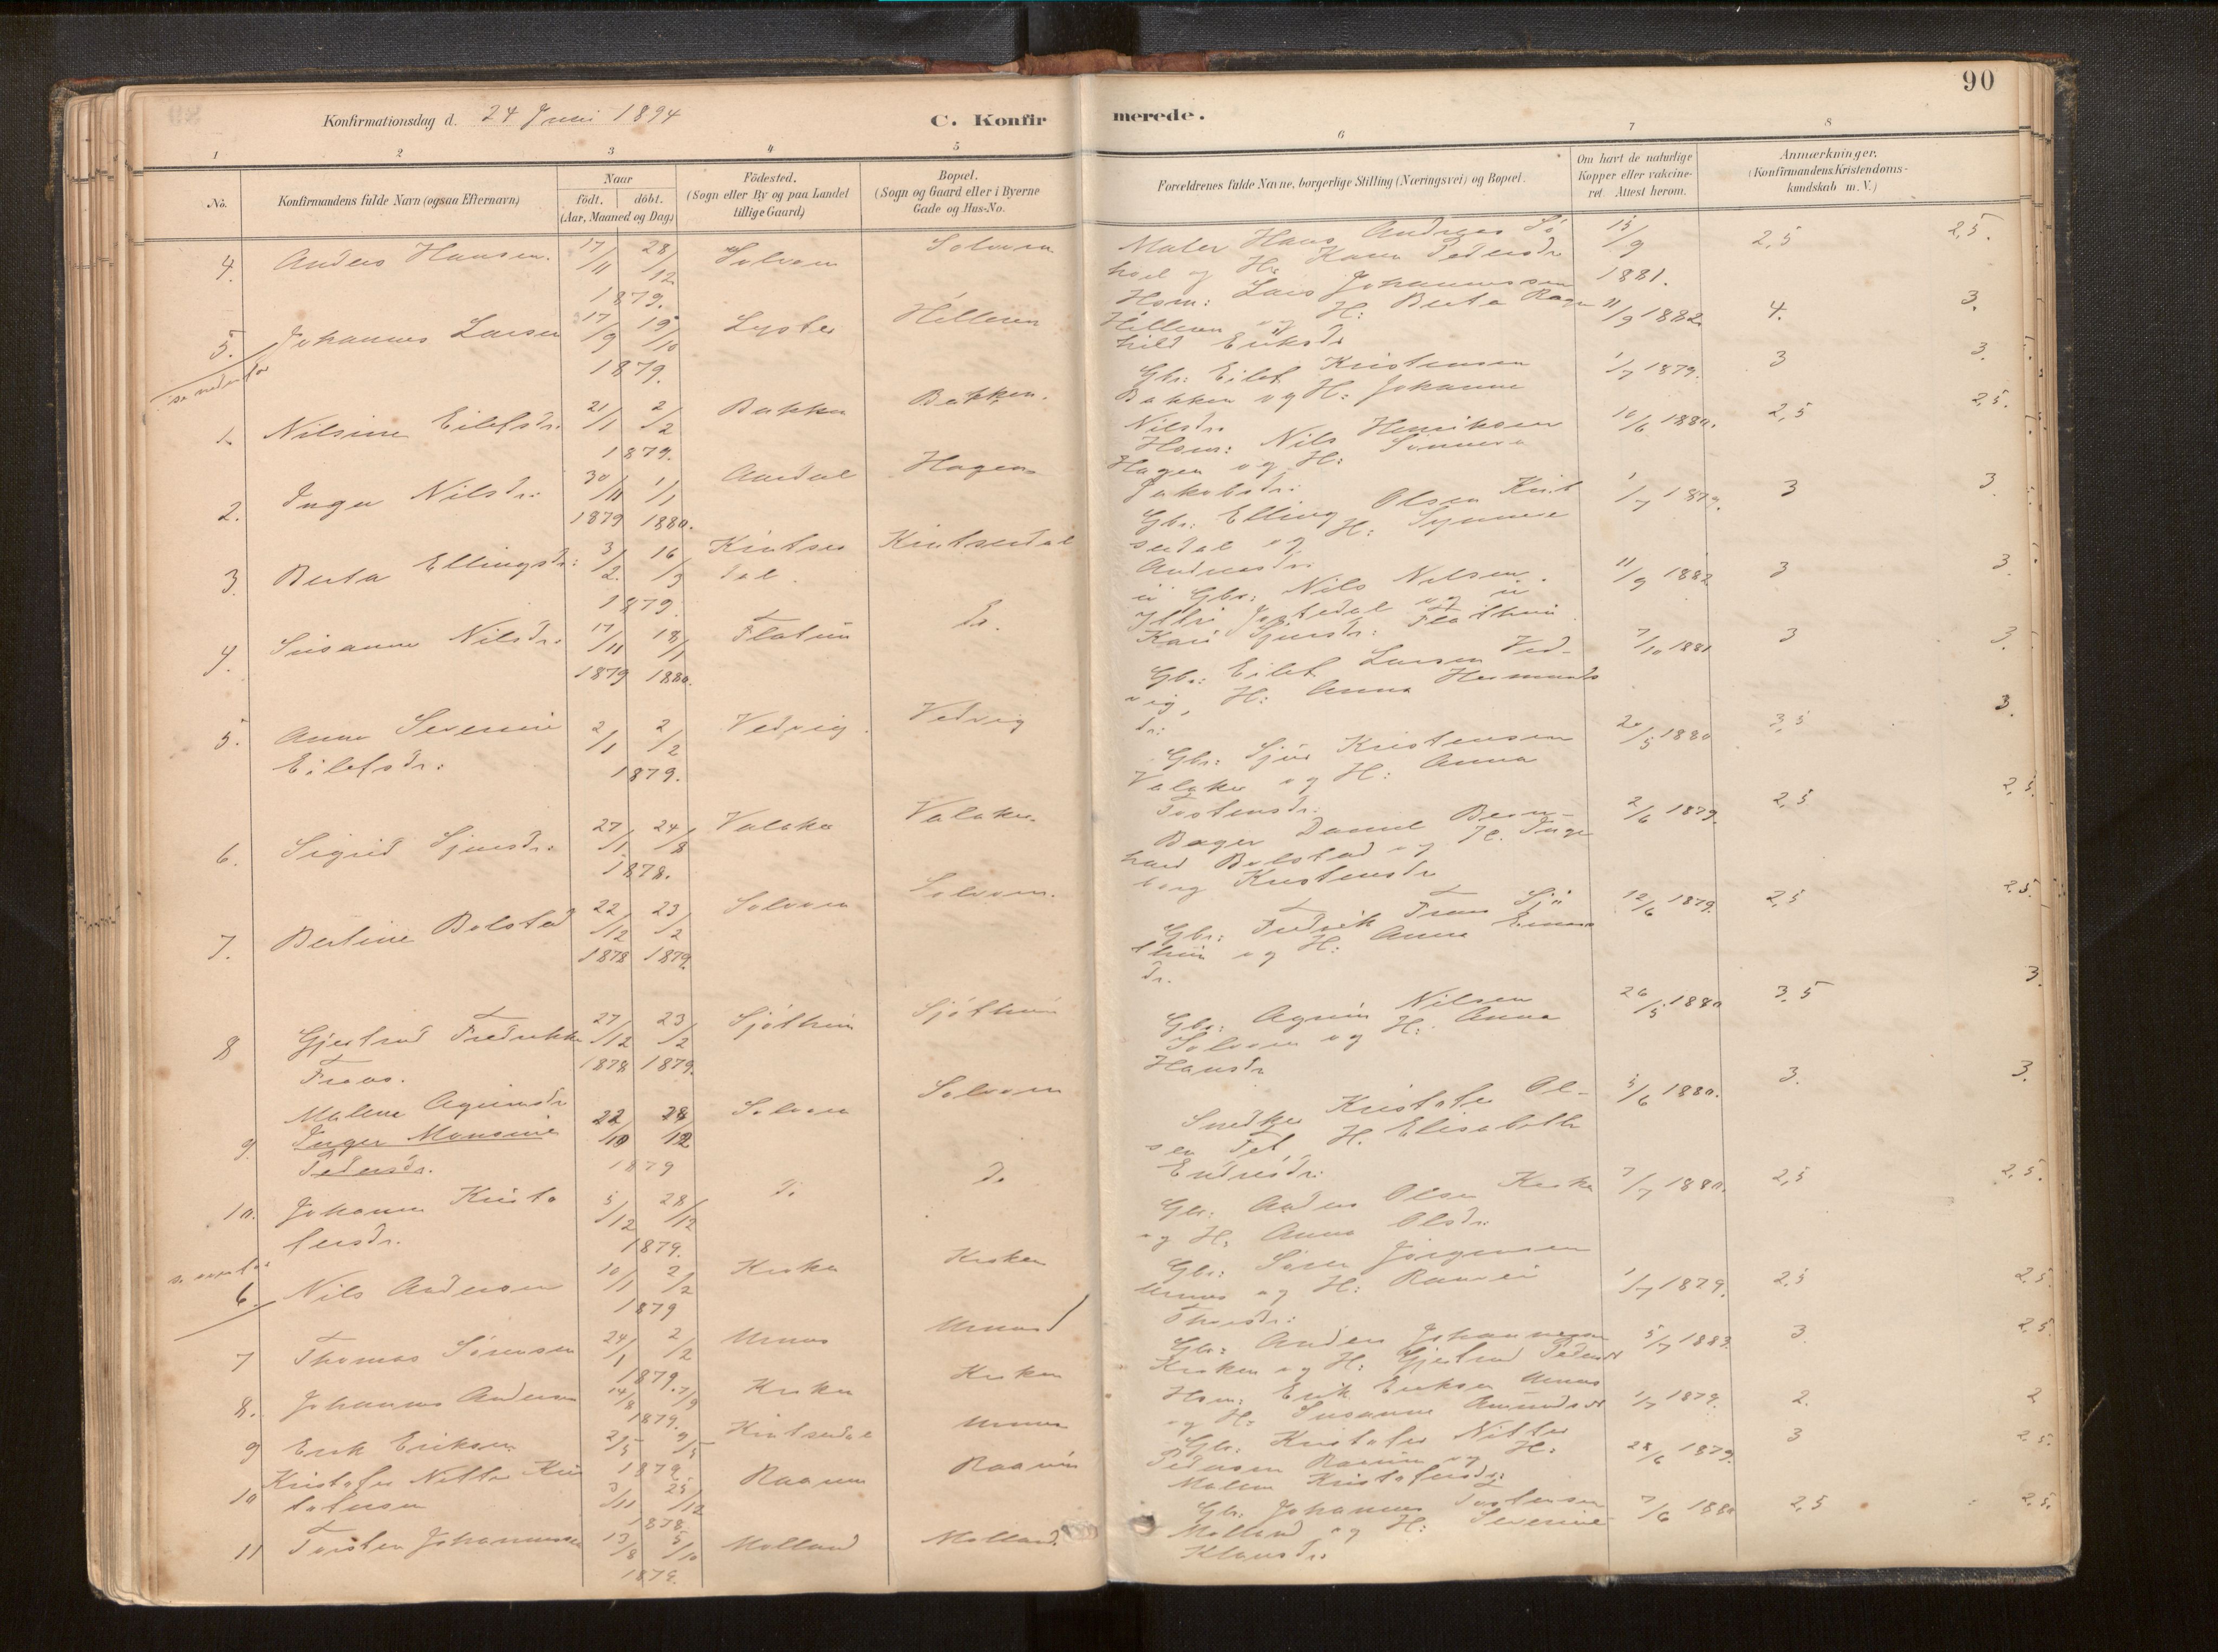 90
Konfirmationsdag d. 24 Juni 1894
C. Konfirmerede.
1 2 3 4 5 6 7 8
No.
Konfirmandens fulde Navn (ogsaa Efternavn)
Naar
födt. döbt.
(Aar, Maaned og Dag)
Födested.
(Sogn eller By og paa Landet
tillige Gaard)
Bopæl.
(Sogn og Gaard eller i Byerne
Gade og Hus-No.
Forældrenes fulde Navne, borgerlige Stilling (Næringsvei) og Bopæl.
Om havt de naturlige
Kopper eller vakcine-
ret. Attest herom.
Anmærkninger.
(Konfirmandens Kristendoms-
kundskab m. V.)
4. Anders Hansen. 17/11 28/12 1879. Solvorn Solvorn
Maler Hans Andreas
og H: Karen Pedersdr
15/9 1881. 2,5 2,5.
5. Johannes Larsen 17/9 19/10 1879. Lyster Hilleren
Hsm: Lars Johannessen
Hilleren og H: Berta Ragn
hild Eriksdr
11/9 1882. 4. 3.
se nedenfor
1. Nilsine Eilefsdr. 21/1 2/2 1879. Bakken Bakken.
Gbr: Eilef Kristensen
Bakken og H: Johanne
Nilsdr.
1/7 1879. 3 3.
2. Inger Nilsdr: 30/11 1879 1/1 1880. Aardal Hagen
Hsm: Nils Henriksen
Hagen og H: Sunneva
Jakobsdr:
10/6 1880. 2,5 2,5.
3 Berta Ellingsdr: 3/2. 16/3 1879. Kintse
dal. Kintsedal
Gbr: Elling Olsen Kint
sedal og H: Synneve
Andersdr:
1/7 1879. 3 3.
4. Susanne Nilsdr: 17/11 1879 18/1 1880. Flatun Do.
Gbr: Nils Nilsen
Kari Sjursdr:
11/9 1882 3 3.
5. Anna Severine
Eilefsdr: 2/1 2/2 1879. Vedvig. Vedvig
Gbr: Eilef Larsen Ved-
vig, H: Anna Hermunds
dr:
7/10 1881 3 3.
6. Sigrid Sjursdr: 27/1 24/8 1878. Valaker Valaker.
Gbr: Sjur Kristensen
Valaker og H: Anna
Tostensdr:
20/5 1880 3,5 3.
7. Bertine Bolstad 22/12 1878 23/2 1879. Solvorn Solvorn.
Bager Daniel Bern-
hard Bolstad og H. Inge
borg Kristensdr
2/6 1879. 2,5 2,5.
8 Gjertrud Fredrikke
Frans. 27/12 1878 23/2 1879. Sjöthun Sjöthun
Gbr: Fredrik Frans Sjö
thun og H: Anna
dr.
12/6 1879. 2,5 2,5.
9. Malene Agrimsdr
Inger Monsine
Pedersdr. 22/10 28/12 1879 Solvorn Solvorn
Gbr: Agrim Nilsen
Solvorn og H: Anna
Hansdr
26/5 1880 3,5 3.
10. Johanne Kristo
fersdr. 5/12 28/12 1879. Do Do
Snedker Kristofer Ol-
sen Fet, H. Elisabeth
Endresdr:
3/6 1880. 3. 3.
6. Nils Andersen 10/1 2/2 1879 Kroken Kroken
Gbr: Anders Olsen Kroken
og H: Anna Olsdr:
7/7 1880. 2,5 2,5.
7 Thomas Sörensen 24/1 2/2 1879. Urnes Urnes
Gbr: Sören Jörgensen
Urnes og H:
Thorsdr:
1/7 1879. 2,5 2,5.
8. Johannes Andersen 14/8 7/9 1879. Kroken Kroken
Gbr: Anders Johannesen
Kroken og H: Gjertrud Pedersdr
5/7 1883. 3. 2,5.
9 Erik Eriksen 2/5 9/5 1879. Kintsedal Urnes
Hsm: Erik Eriksen Urnes
og H: Susanne Amundsdr
1/7 1879. 2. 2
10 Kristofer Nitter Kris
tofersen 3/11 25/12 1878 Raaum Raaum
Gbr: Kristofer Nitter
Pedersen Raaum og H:
Malene Kristofersdr:
28/6 1879. 3 2,5.
11 Torsten Johannessen 13/8 5/10 1879. Molland Molland.
Gbr: Johannes Tostensen
Molland og H: Severine
Klausdr:
7/6 1880 2,5 2,5.